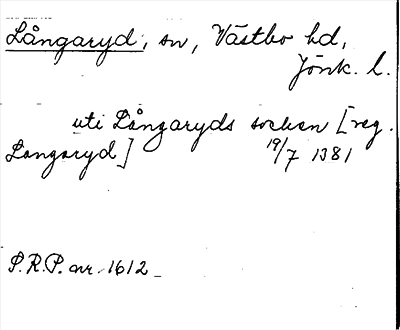 Långaryd, sn, Västbo hd,
Jönk. l.
uti Långaryds sochen [reg.
Langaryd] 19/7 1381
S.R.P. nr. 1612